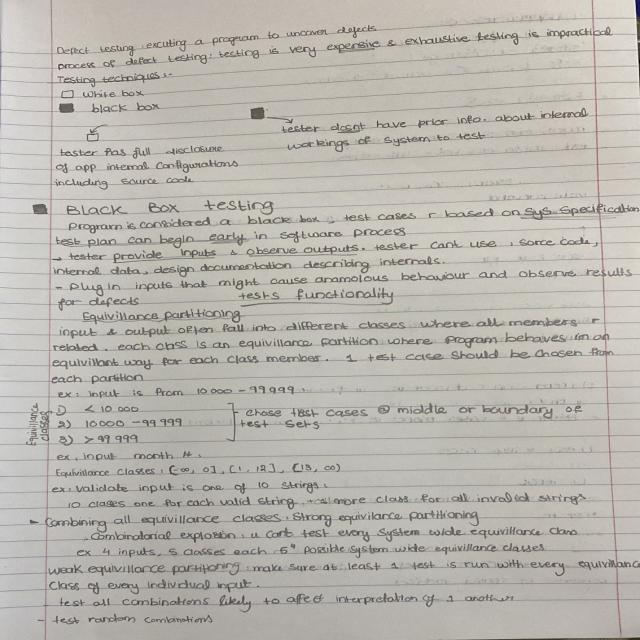 Defect testing: excuting a program to uncover defects
process of defect testing: testing is very expensive & exhaustive testing is impractical
Testing techniques:-
□ white box
■ black box
tester has full disclosure
of app internal configurations
including source code
tester dosnt have prior info. about internal
workings of system to test
■ Black Box testing
Program is considered a black box: test cases r based on sys specification
test plan can begin early in software process
→ tester provide inputs & observe outputs. tester cant use, sorce code,
internal data, design documentation describing internals.
- plug in inputs that might cause anamolous behaviour and observe results
for defects
tests functionality
Equivillance partitioning
input & output often fall into different classes where all members r
related. each class is an equivillance partition where program behaves in an
equivillant way for each class member. 1 test case should be chosen from
each partition
ex: input is from 10 000 - 99 999.
Equivillance classes
1) < 10 000
2) 10000 - 99 999
3) > 99 999
chose test cases @ middle or boundary of
test sets
ex. input month #.
Equivillance classes: (-∞, 0], [1, 12], [13, ∞)
ex: validate input is one of 10 strings.
10 classes one for each valid string, 1 more class for all invalid strings
- Combining all equivillance classes: Strong equivilance partitioning
Combinatorial explosion: u cant test every system wide equivillance class
ex 4 inputs, 5 classes each. 5⁴ posible system wide equivillance classes
weak equivillance partitioning: make sure at least 1 test is run with every equivillance
class of every individual input.
- test all combinations likely to affect interpretation of 1 another
- test random combinations